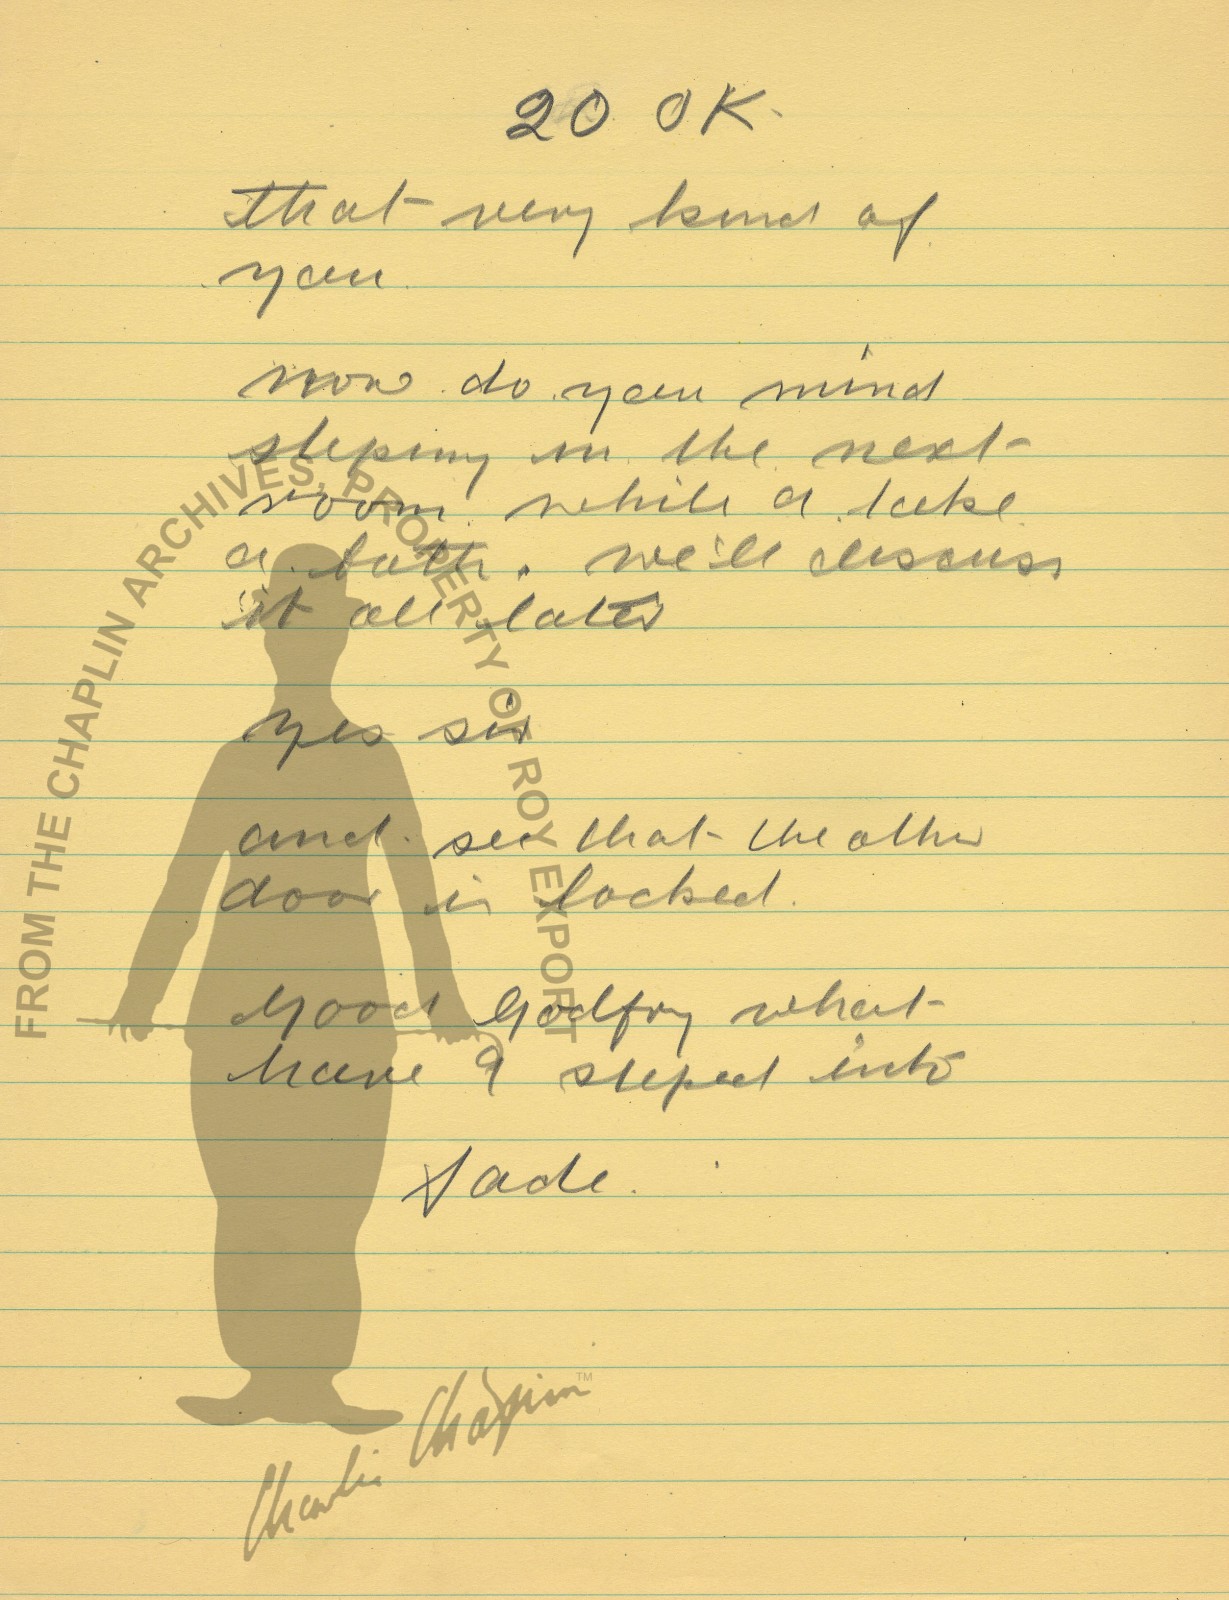 20 OK.
that very kind of
you.
now do you mind
steping in the next
room while a take
a bath. we'll discuss
it all later
yes sir
and see that the other
door is locked.
Good Godfry what
have I steped into
fade.
FROM THE CHAPLIN ARCHIVES, PROPERTY OF ROY EXPORT
Charlie Chaplin™